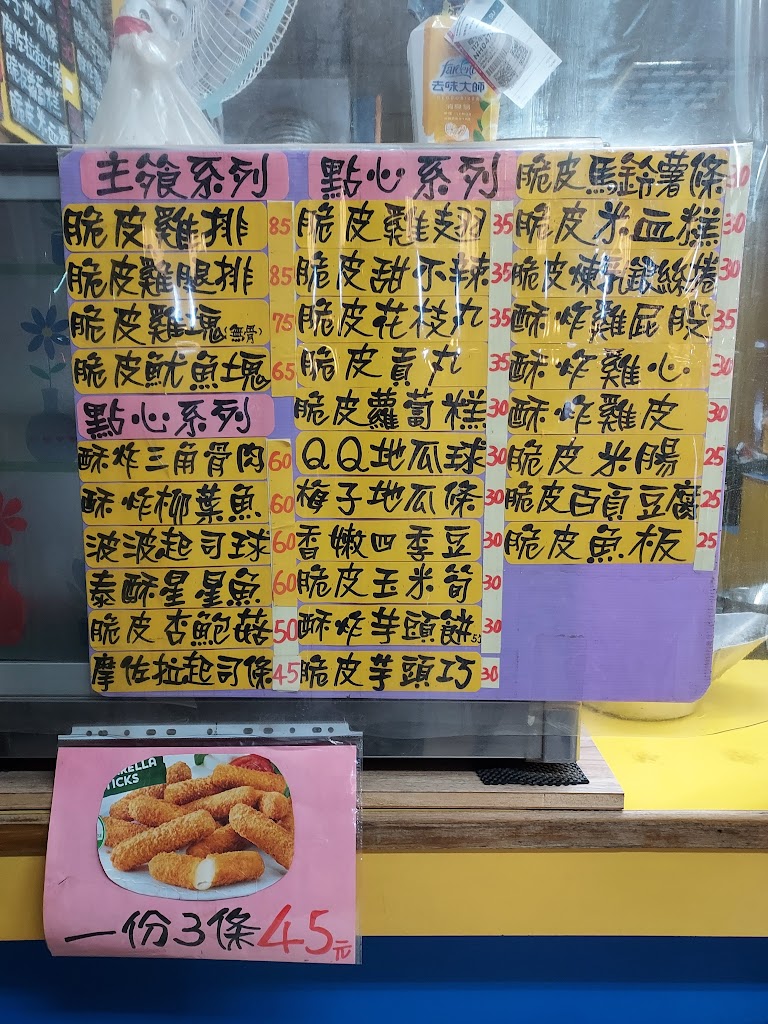 去味大師
主餐系列
脆皮雞排 85
脆皮雞腿排 85
脆皮雞塊(無骨) 75
脆皮魷魚塊 65
點心系列
酥炸三角骨肉 60
酥炸柳葉魚 60
波波起司球 60
泰酥星星魚 60
脆皮杏鮑菇 50
摩佐拉起司條 45
點心系列
脆皮雞翅 35
脆皮甜不辣 35
脆皮花枝丸 35
脆皮貢丸 35
脆皮蘿蔔糕 30
QQ地瓜球 30
梅子地瓜條 30
香嫩四季豆 30
脆皮玉米筍 30
酥炸芋頭餅 30
脆皮芋頭巧 30
脆皮馬鈴薯條 30
脆皮米血糕 30
脆皮煉乳銀絲捲 30
酥炸雞屁股 35
酥炸雞心 30
酥炸雞皮 30
脆皮米腸 25
脆皮百頁豆腐 25
脆皮魚板 25
RELLA
TICKS
一份3條45元